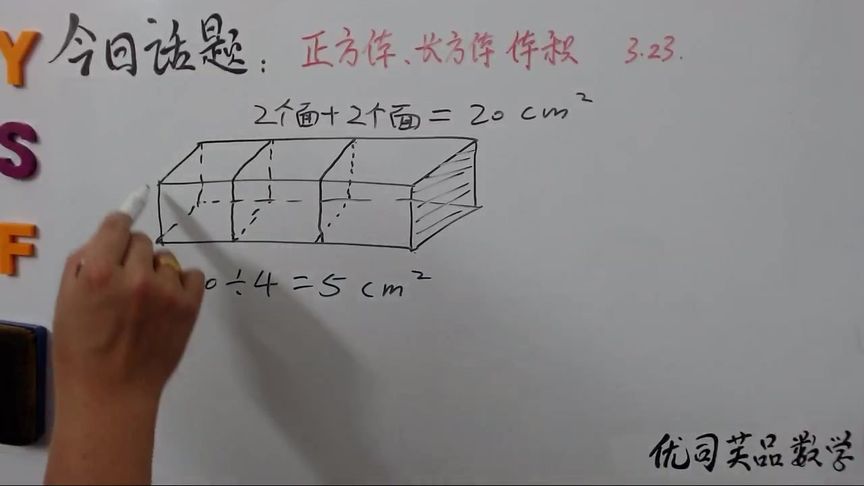 今日话题：正方体、长方体体积 3.23.
2个面+2个面=20cm²
0÷4=5cm²
Y
S
F
优司芙品数学